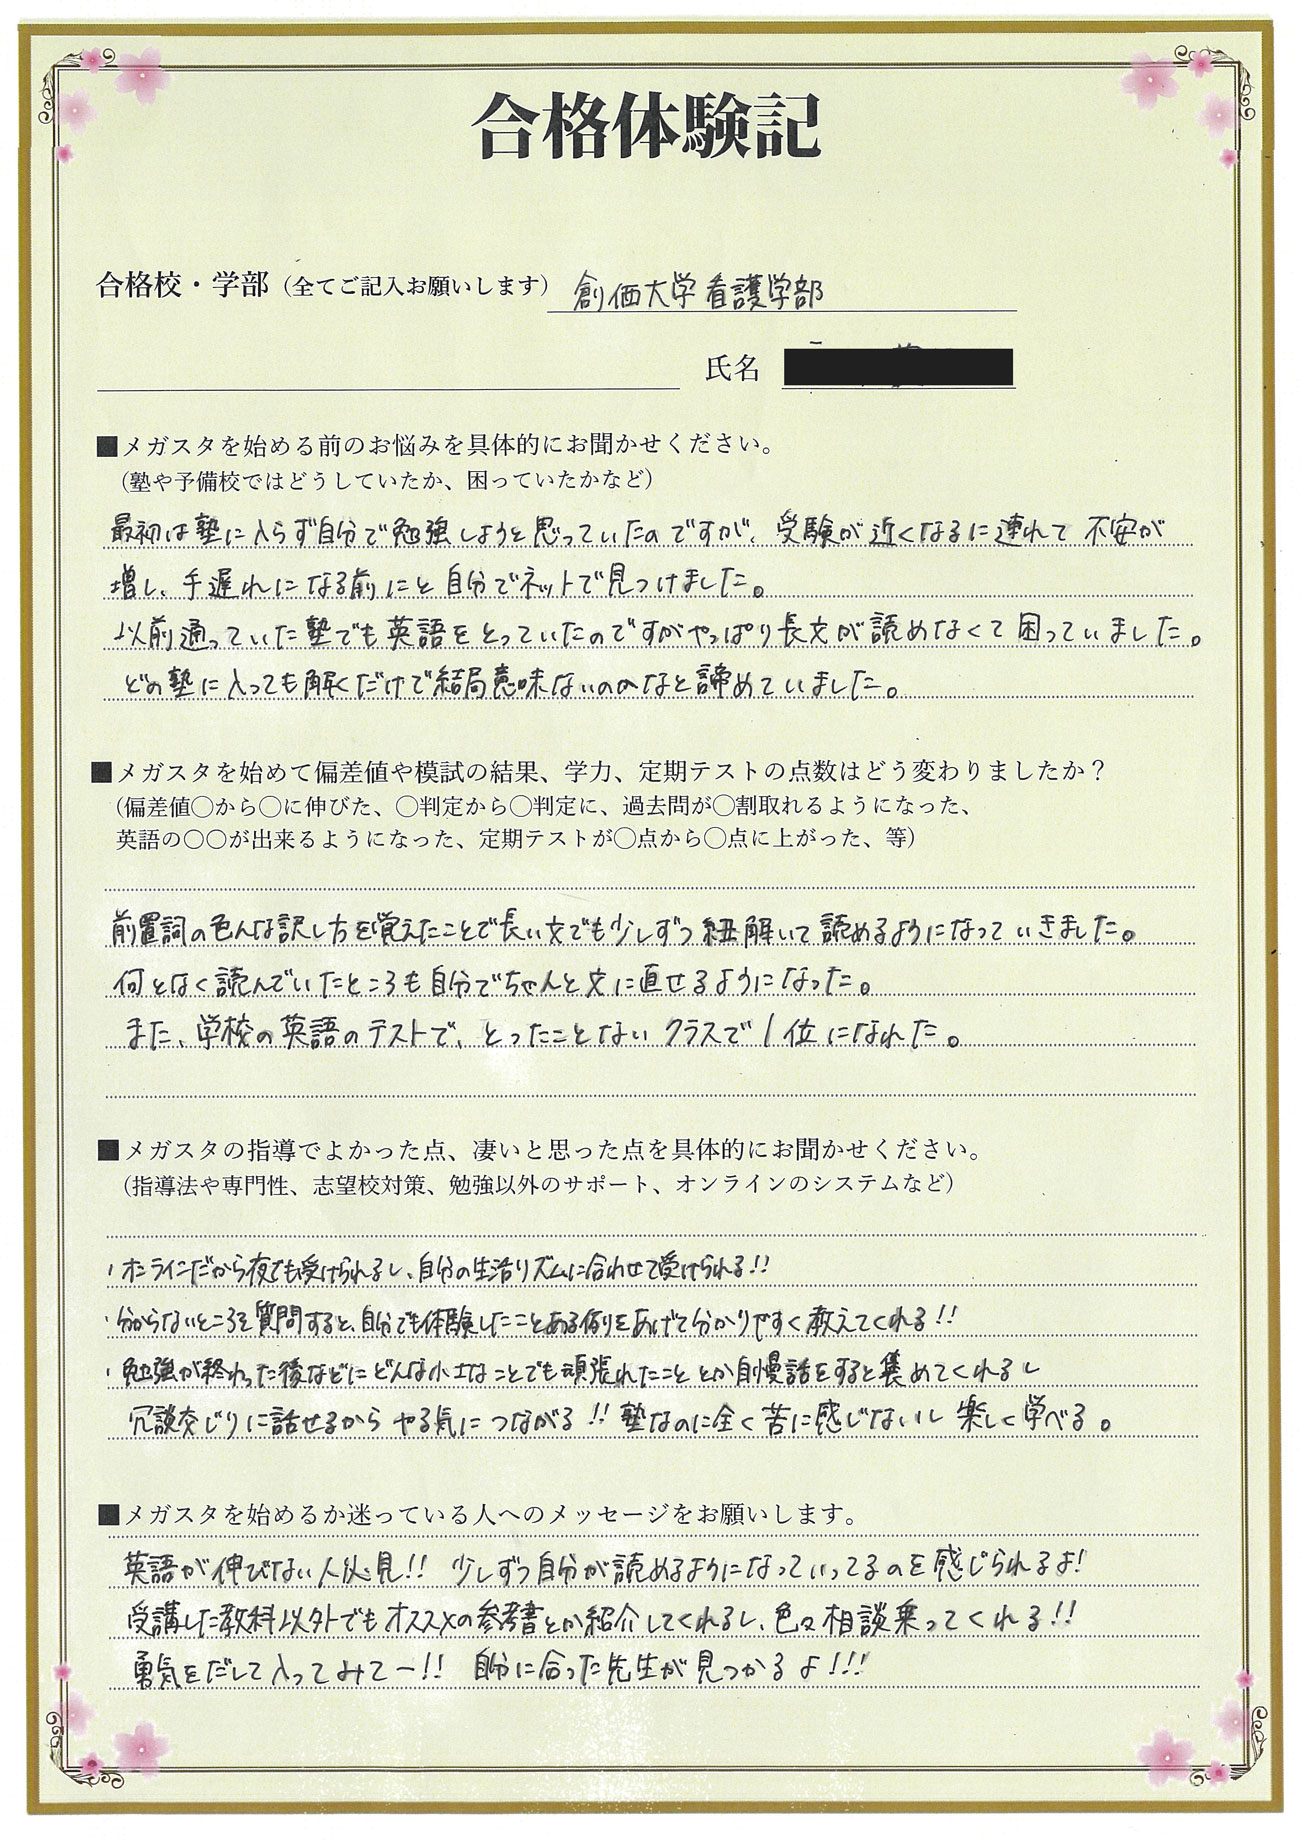 合格体験記
合格校・学部（全てご記入お願いします） 創価大学看護学部
氏名
■メガスタを始める前のお悩みを具体的にお聞かせください。
（塾や予備校ではどうしていたか、困っていたかなど）
最初は塾に入らず自分で勉強しようと思っていたのですが、受験が近くなるに連れて不安が
増し、手遅れになる前にと自分でネットで見つけました。
以前通っていた塾でも英語をとっていたのですがやっぱり長文が読めなくて困っていました。
どの塾に入っても解くだけで結局意味ないのかなと諦めていました。
■メガスタを始めて偏差値や模試の結果、学力、定期テストの点数はどう変わりましたか？
（偏差値〇から〇に伸びた、〇判定から〇判定に、過去問が〇割取れるようになった、
英語の〇〇が出来るようになった、定期テストが〇点から〇点に上がった、等）
前置詞の色んな訳し方を覚えたことで長い文でも少しずつ紐解いて読めるようになっていきました。
何となく読んでいたところも自分でちゃんと文に直せるようになった。
また、学校の英語のテストで、とったことないクラスで1位になれた。
■メガスタの指導でよかった点、凄いと思った点を具体的にお聞かせください。
（指導法や専門性、志望校対策、勉強以外のサポート、オンラインのシステムなど）
・オンラインだから夜でも受けられるし、自分の生活リズムに合わせて受けられる!!
・分からないところを質問すると、自分でも体験したことある例をあげて分かりやすく教えてくれる!!
・勉強が終わった後などにどんな小さなことでも頑張れたこととか自慢話をすると褒めてくれるし
冗談交じりに話せるからやる気につながる!!塾なのに全く苦に感じないし楽しく学べる。
■メガスタを始めるか迷っている人へのメッセージをお願いします。
英語が伸びない人必見!! 少しずつ自分が読めるようになっていってるのを感じられるよ!
受講した教科以外でもオススメの参考書とか紹介してくれるし、色々相談乗ってくれる!!
勇気をだして入ってみてー!! 自分に合った先生が見つかるよ!!!